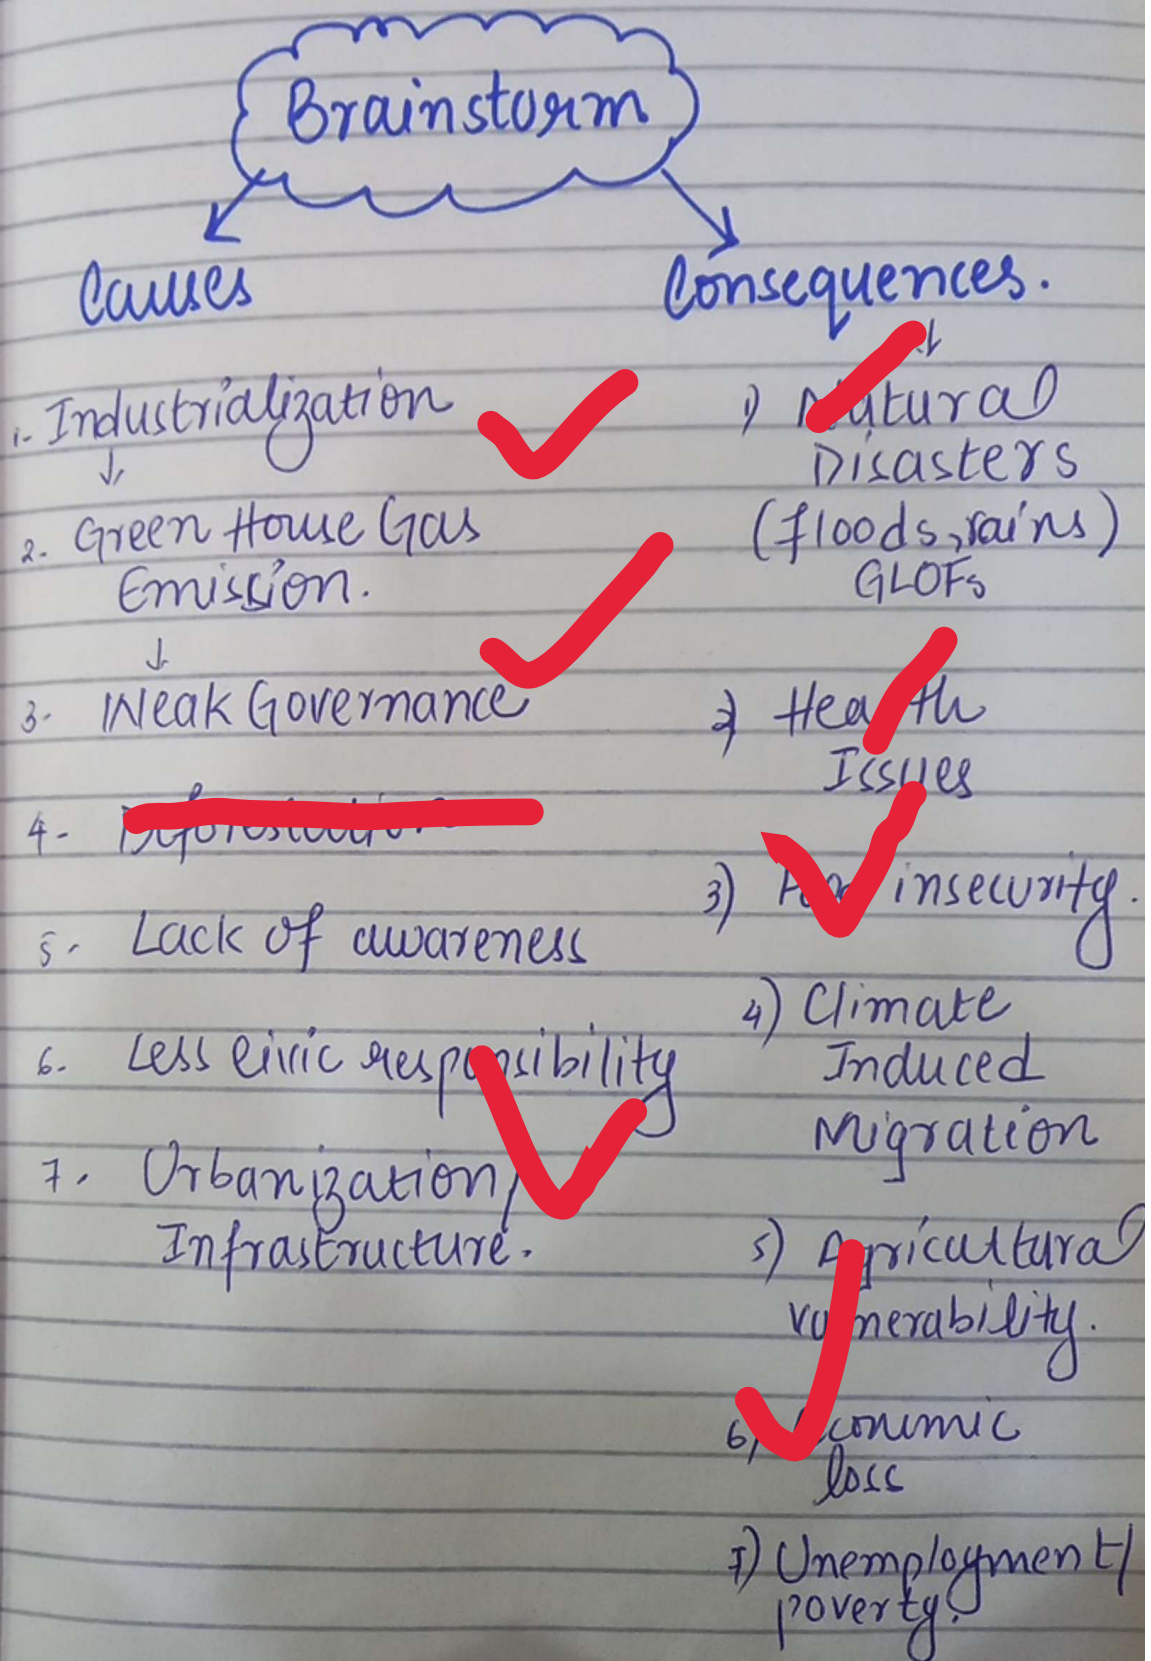 Brainstorm
Causes
1- Industrialization
2- Green House Gas
Emission.
3- Weak Governance
4- Deforestation
5- Lack of awareness
6- Less civic responsibility
7- Urbanization/
Infrastructure.
Consequences.
1) Natural
Disasters
(floods, rains)
GLOFs
2) Health
Issues
3) insecurity.
4) Climate
Induced
Migration
5) Agricultural
vulnerability.
6) Economic
loss
7) Unemployment/
poverty.